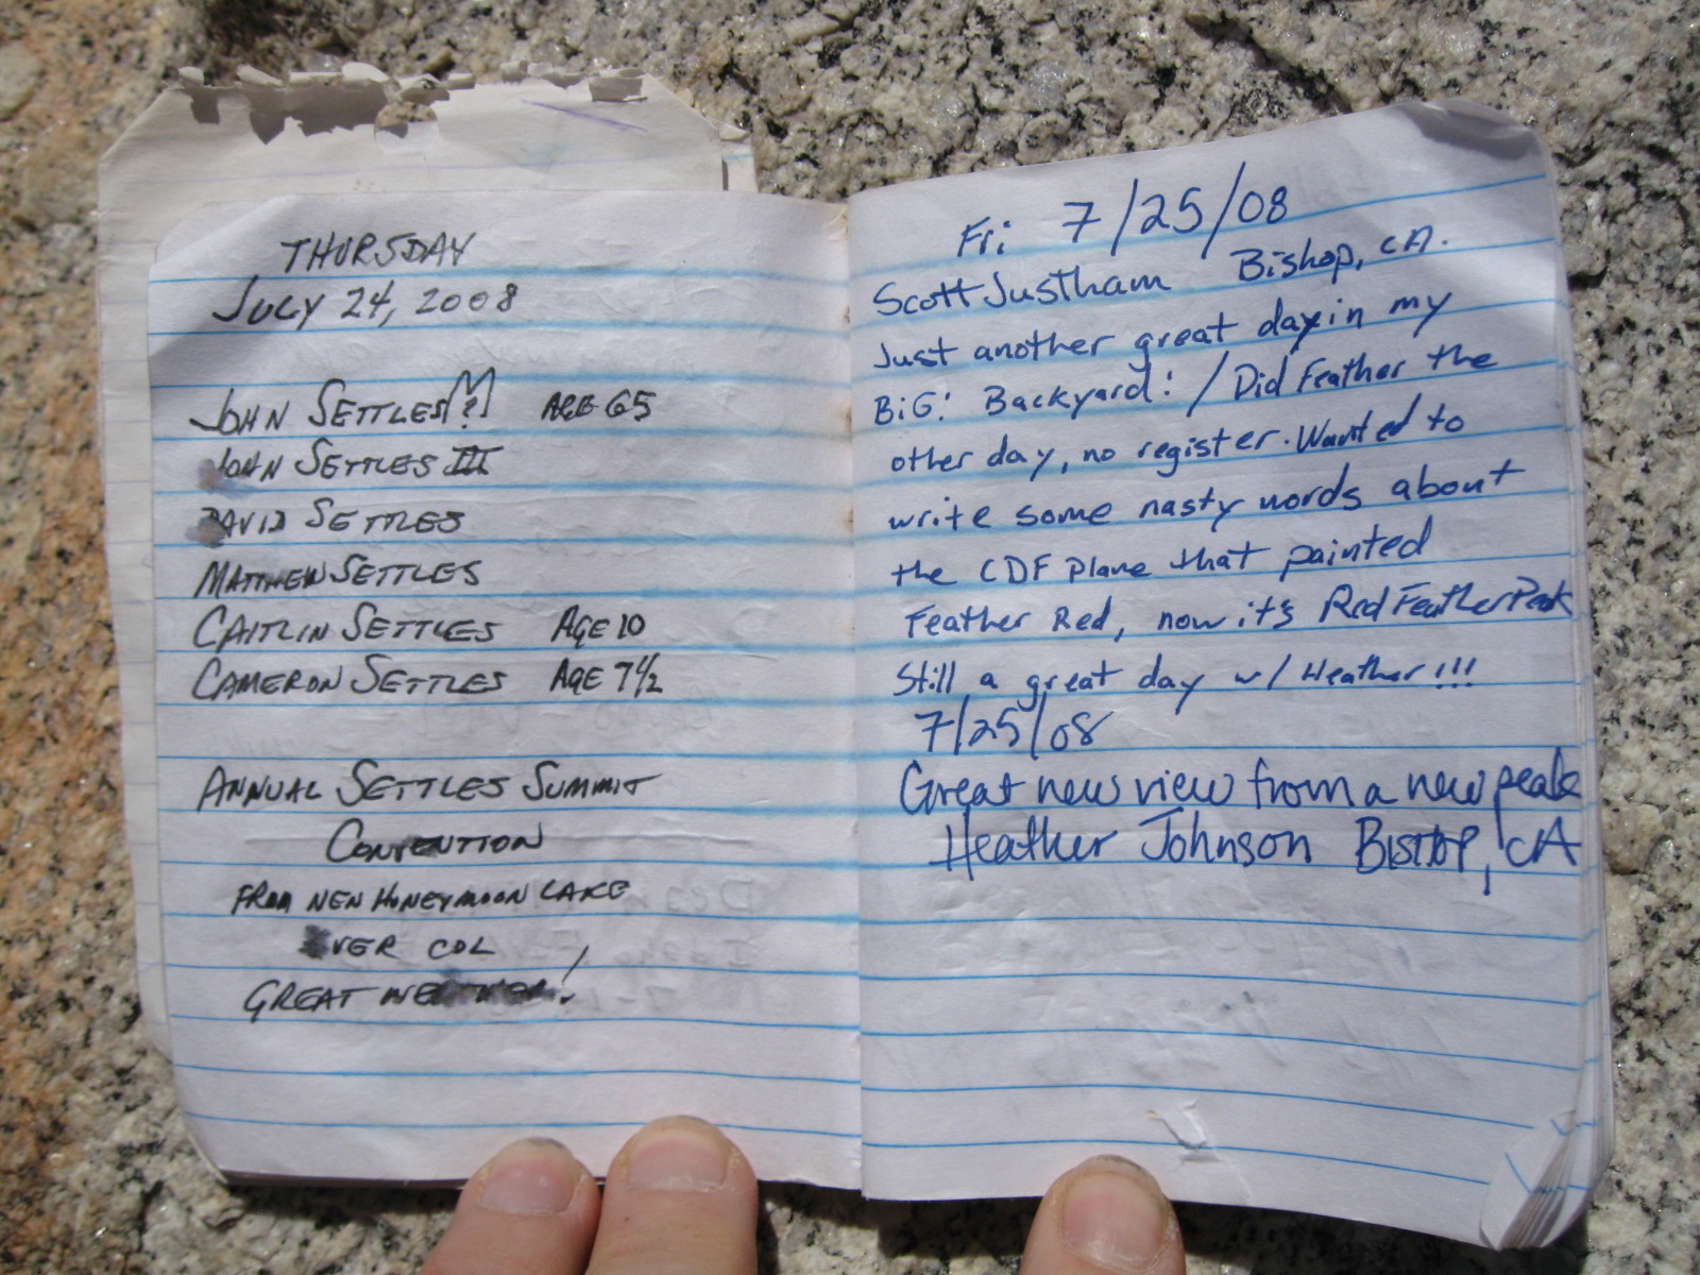 THURSDAY
JULY 24, 2008
JOHN SETTLES AGE 65
JOHN SETTLES III
DAVID SETTLES
MATTHEW SETTLES
CAITLIN SETTLES AGE 10
CAMERON SETTLES AGE 7 1/2
ANNUAL SETTLES SUMMIT
CONVENTION
FROM NEW HONEYMOON LAKE
OVER COL
GREAT
Fri 7/25/08
Scott Justham Bishop, CA.
Just another great day in my
BiG! Backyard! / Did Feather the
other day, no register. Wanted to
write some nasty words about
the CDF Plane that painted
Feather Red, now it's Red Feather Peak
Still a great day w/ Heather!!!
7/25/08
Great new view from a new peak
Heather Johnson BISHOP, CA